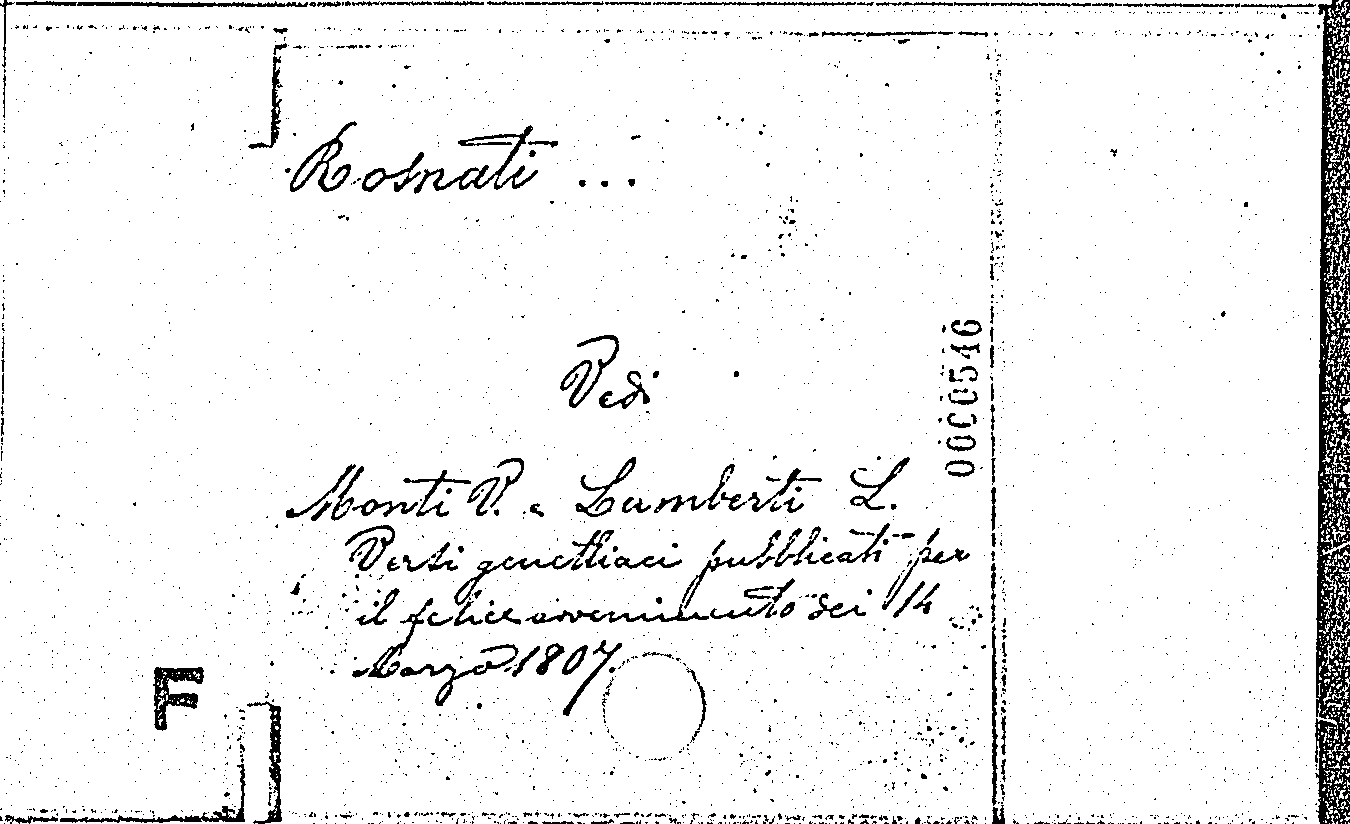 Rosnati ...
Vedi
Monti V. e Lamberti L.
Versi genetliaci pubblicati per
il felice avvenimento dei 14
Marzo 1807.
0000546
F